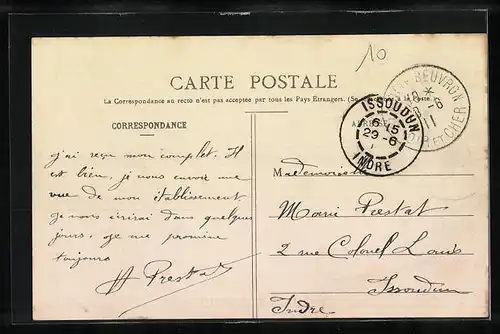 10
CARTE POSTALE
La Correspondance au recto n'est pas acceptée par tous les Pays Étrangers. (Se
à la Poste.)
CORRESPONDANCE
BEUVRON
11
ET CHER
ISSOUDUN
6 15
29 - 6
INDRE
J'ai reçu mon complet. Il
est bien, je vous envoie une
vue de mon établissement.
Je vous écrirai dans quelques
jours. Je me promène
toujours
Prestat
Mademoiselle
Marie Prestat
2 rue Colonel
Issoudun
Indre